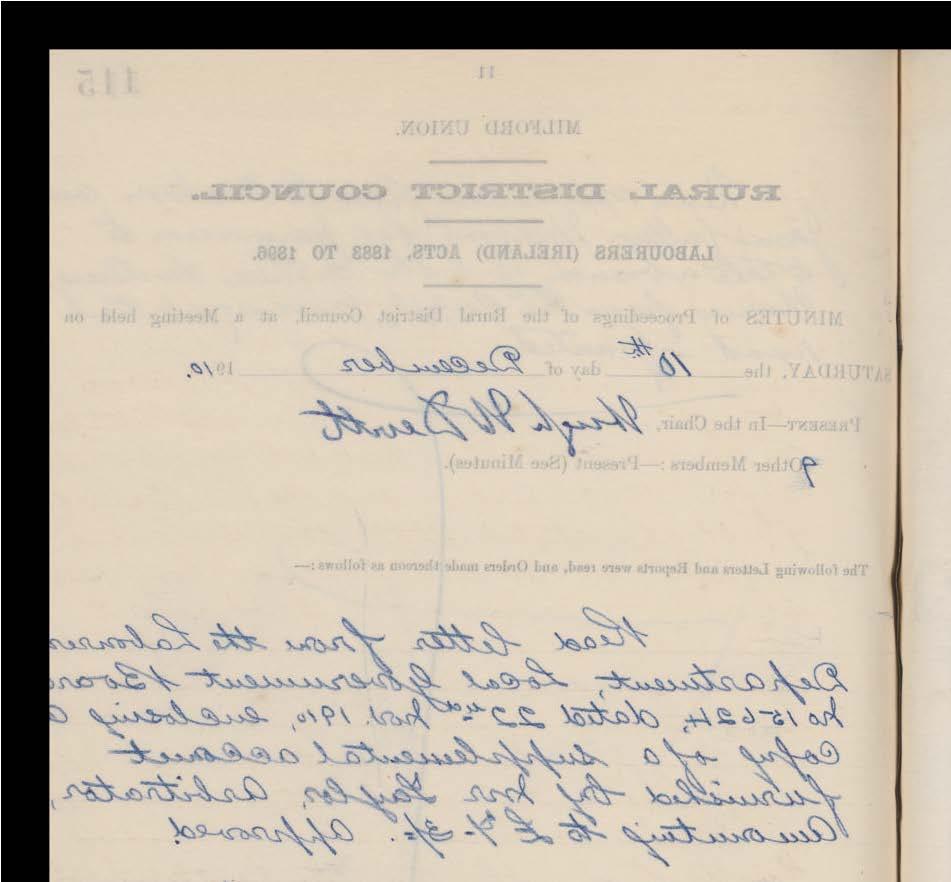 11
115
MILFORD UNION.
RURAL DISTRICT COUNCIL.
LABOURERS (IRELAND) ACTS, 1883 TO 1896.
MINUTES of Proceedings of the Rural District Council, at a Meeting held on
SATURDAY, the 10th day of December 1910.
PRESENT—In the Chair, Hugh
9 Other Members :—Present (See Minutes).
The following Letters and Reports were read, and Orders made thereon as follows :—
Read letter from the Labourers
Department, Local Government Board
No 15624, dated 22nd Novr. 1910, enclosing a
Copy of a supplemental account
furnished by Mr Taylor, Arbitrator,
amounting to £ Approved.